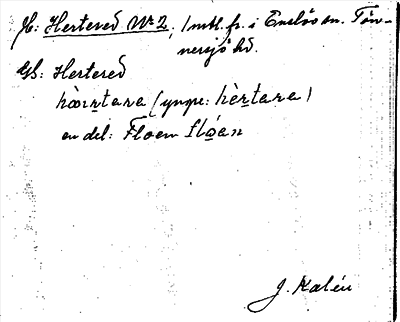 H: Hertered Nr 2, 1 mtl. fr. i Enslöv sn. Tön-
nersjö hd.
Gs: Hertered
hæ̀rṟtara (yngre: hèṟtara)
en del: Floen flo̱an
J. Kalén